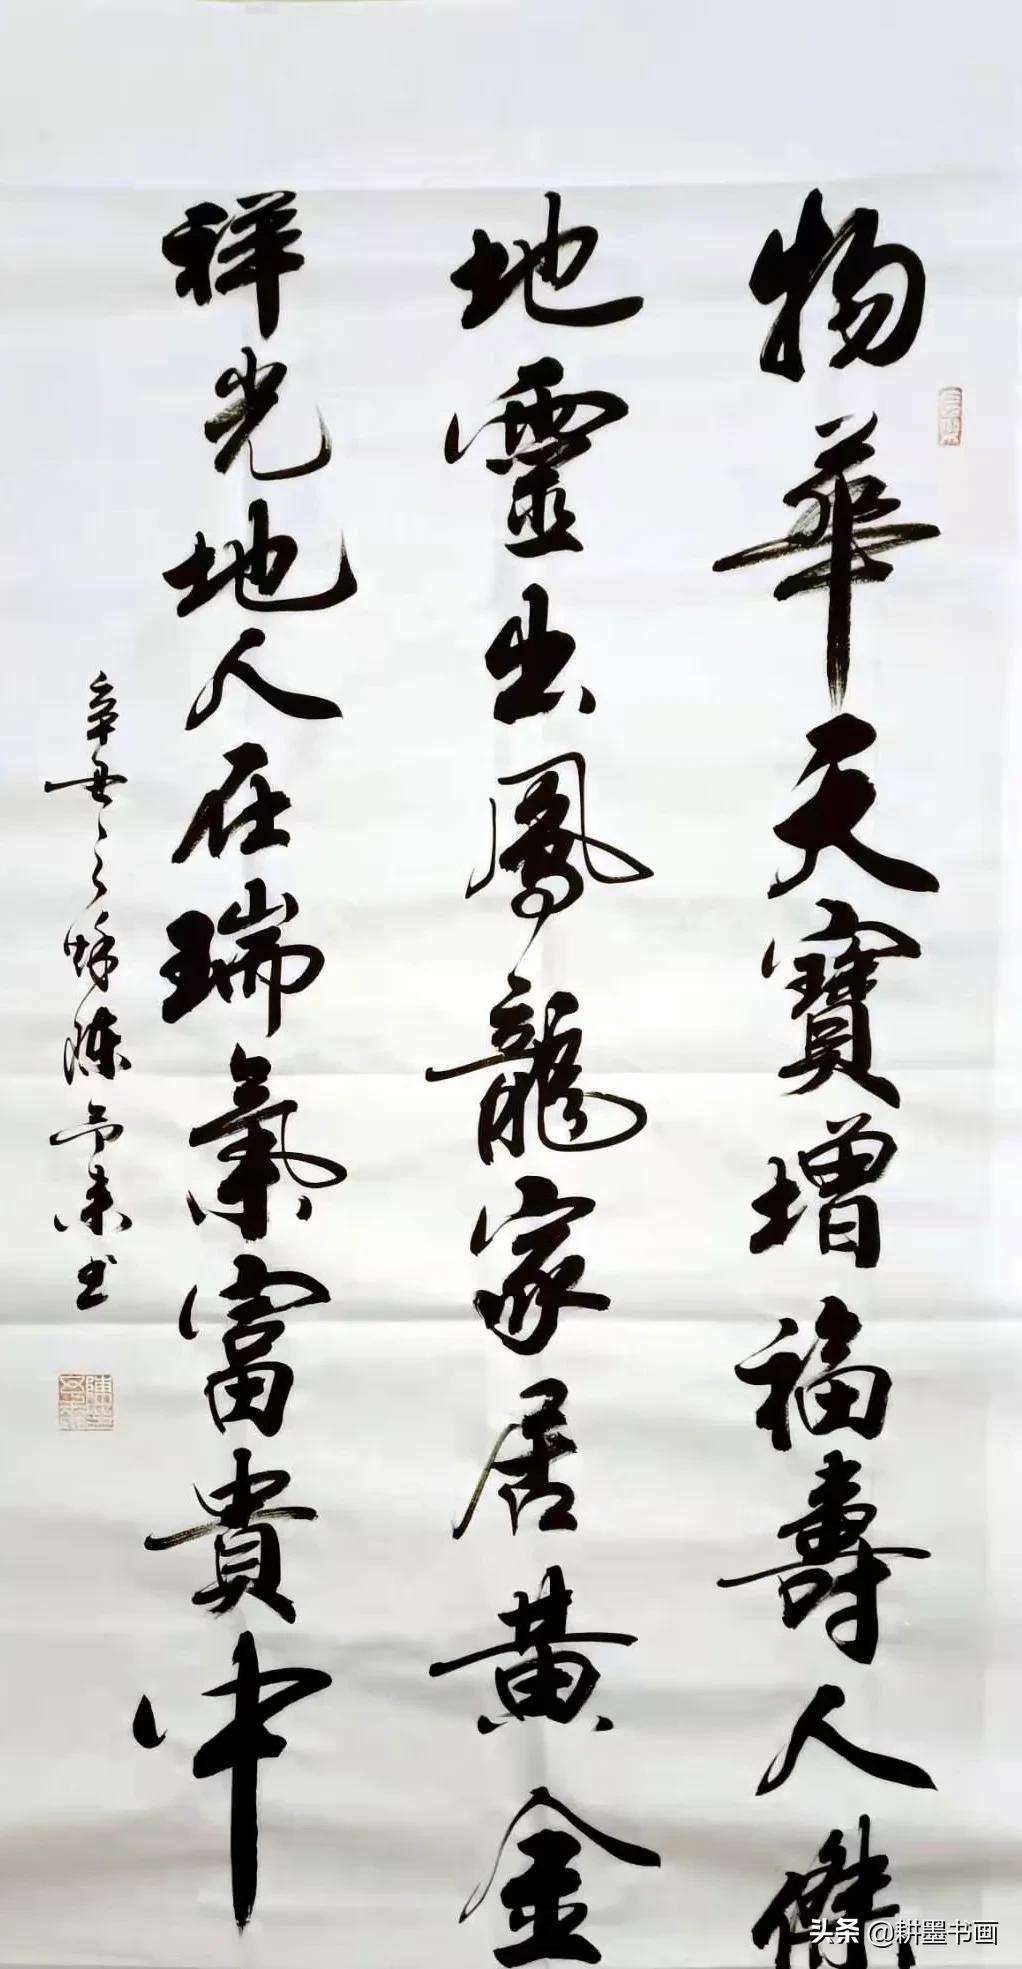 物華天寶增福壽人傑
地靈出鳳龍家居黃金
祥光地人在瑞氣富貴中
辛丑之 陳 書
头条 @耕墨书画